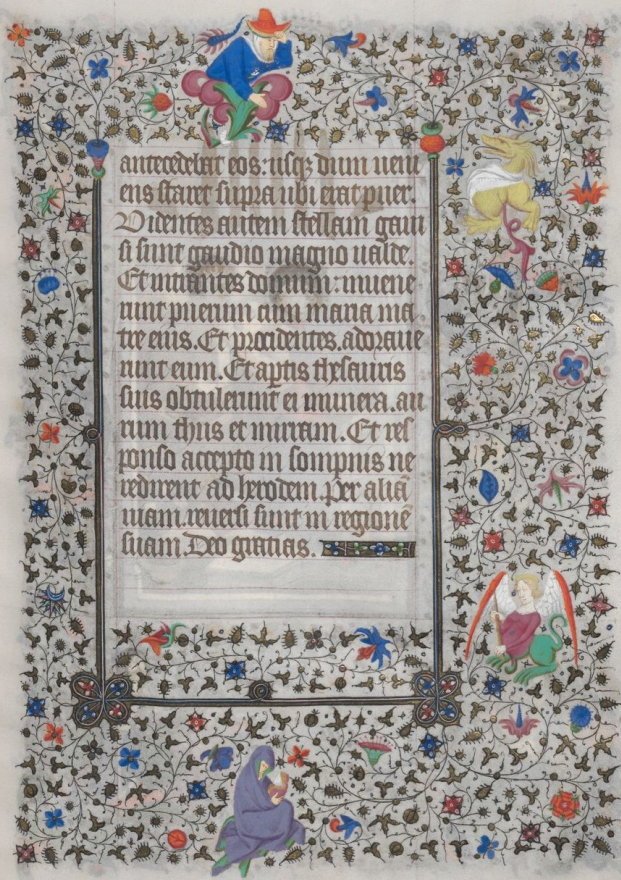 antecedebat eos: usq; dum veni
ens staret supra ubi erat puer.
Videntes autem stellam gaui
si sunt gaudio magno ualde.
Et intrantes domum: inuene
runt puerum cum maria ma
tre eius. Et procidentes. adoraue
runt eum. Et aptis thesauris
suis obtulerunt ei munera. au
rum thus et mirram. Et res
ponso accepto in sompnis ne
redirent ad herodem. per aliā
uiam. reuersi sunt in regionē
suam. Deo gratias.